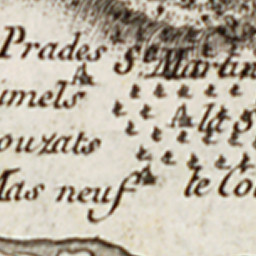 Prades St Martin
umels
A la S
ouzats
Mas neuf le Co